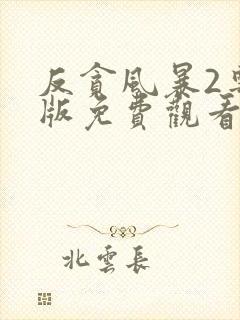 反貪風暴2粵
版免費觀看
北雲長